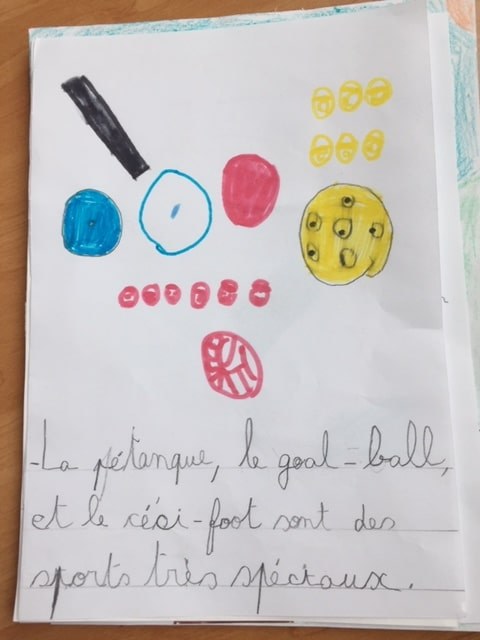 -La pétanque, le goal-ball,
et le céci-foot sont des
sports très spéciaux.